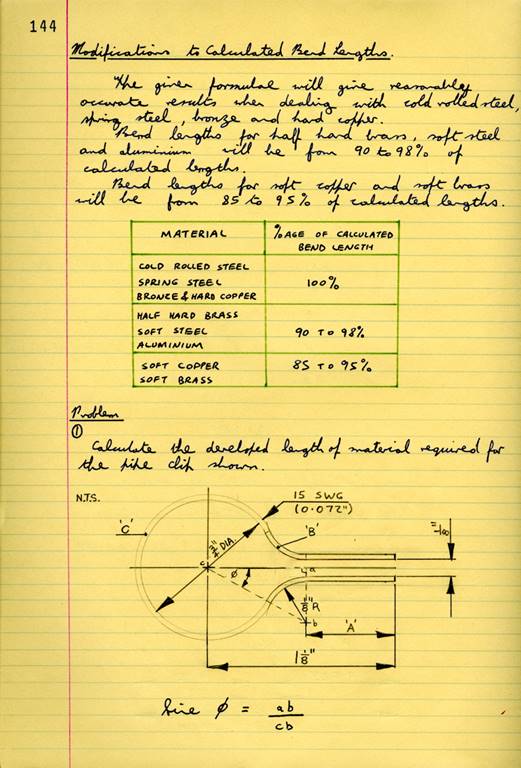 144
Modifications to Calculated Bend Lengths.
The given formulae will give reasonably
accurate results when dealing with cold rolled steel,
spring steel, bronze and hard copper.
Bend lengths for half hard brass, soft steel
and aluminium will be from 90 to 98% of
calculated lengths.
Bend lengths for soft copper and soft brass
will be from 85 to 95% of calculated lengths.
MATERIAL
%AGE OF CALCULATED
BEND LENGTH
COLD ROLLED STEEL
SPRING STEEL
BRONZE & HARD COPPER
100%
HALF HARD BRASS
SOFT STEEL
ALUMINIUM
90 TO 98%
SOFT COPPER
SOFT BRASS
85 TO 95%
Problem
①
Calculate the developed length of material required for
the pipe clip shown.
N.T.S.
15 SWG
(0.072")
'C'
'B'
3/4" DIA.
1/8"
c
ø
a
1/8" R
b
'A'
1 1/8"
Sine ø = ab/cb